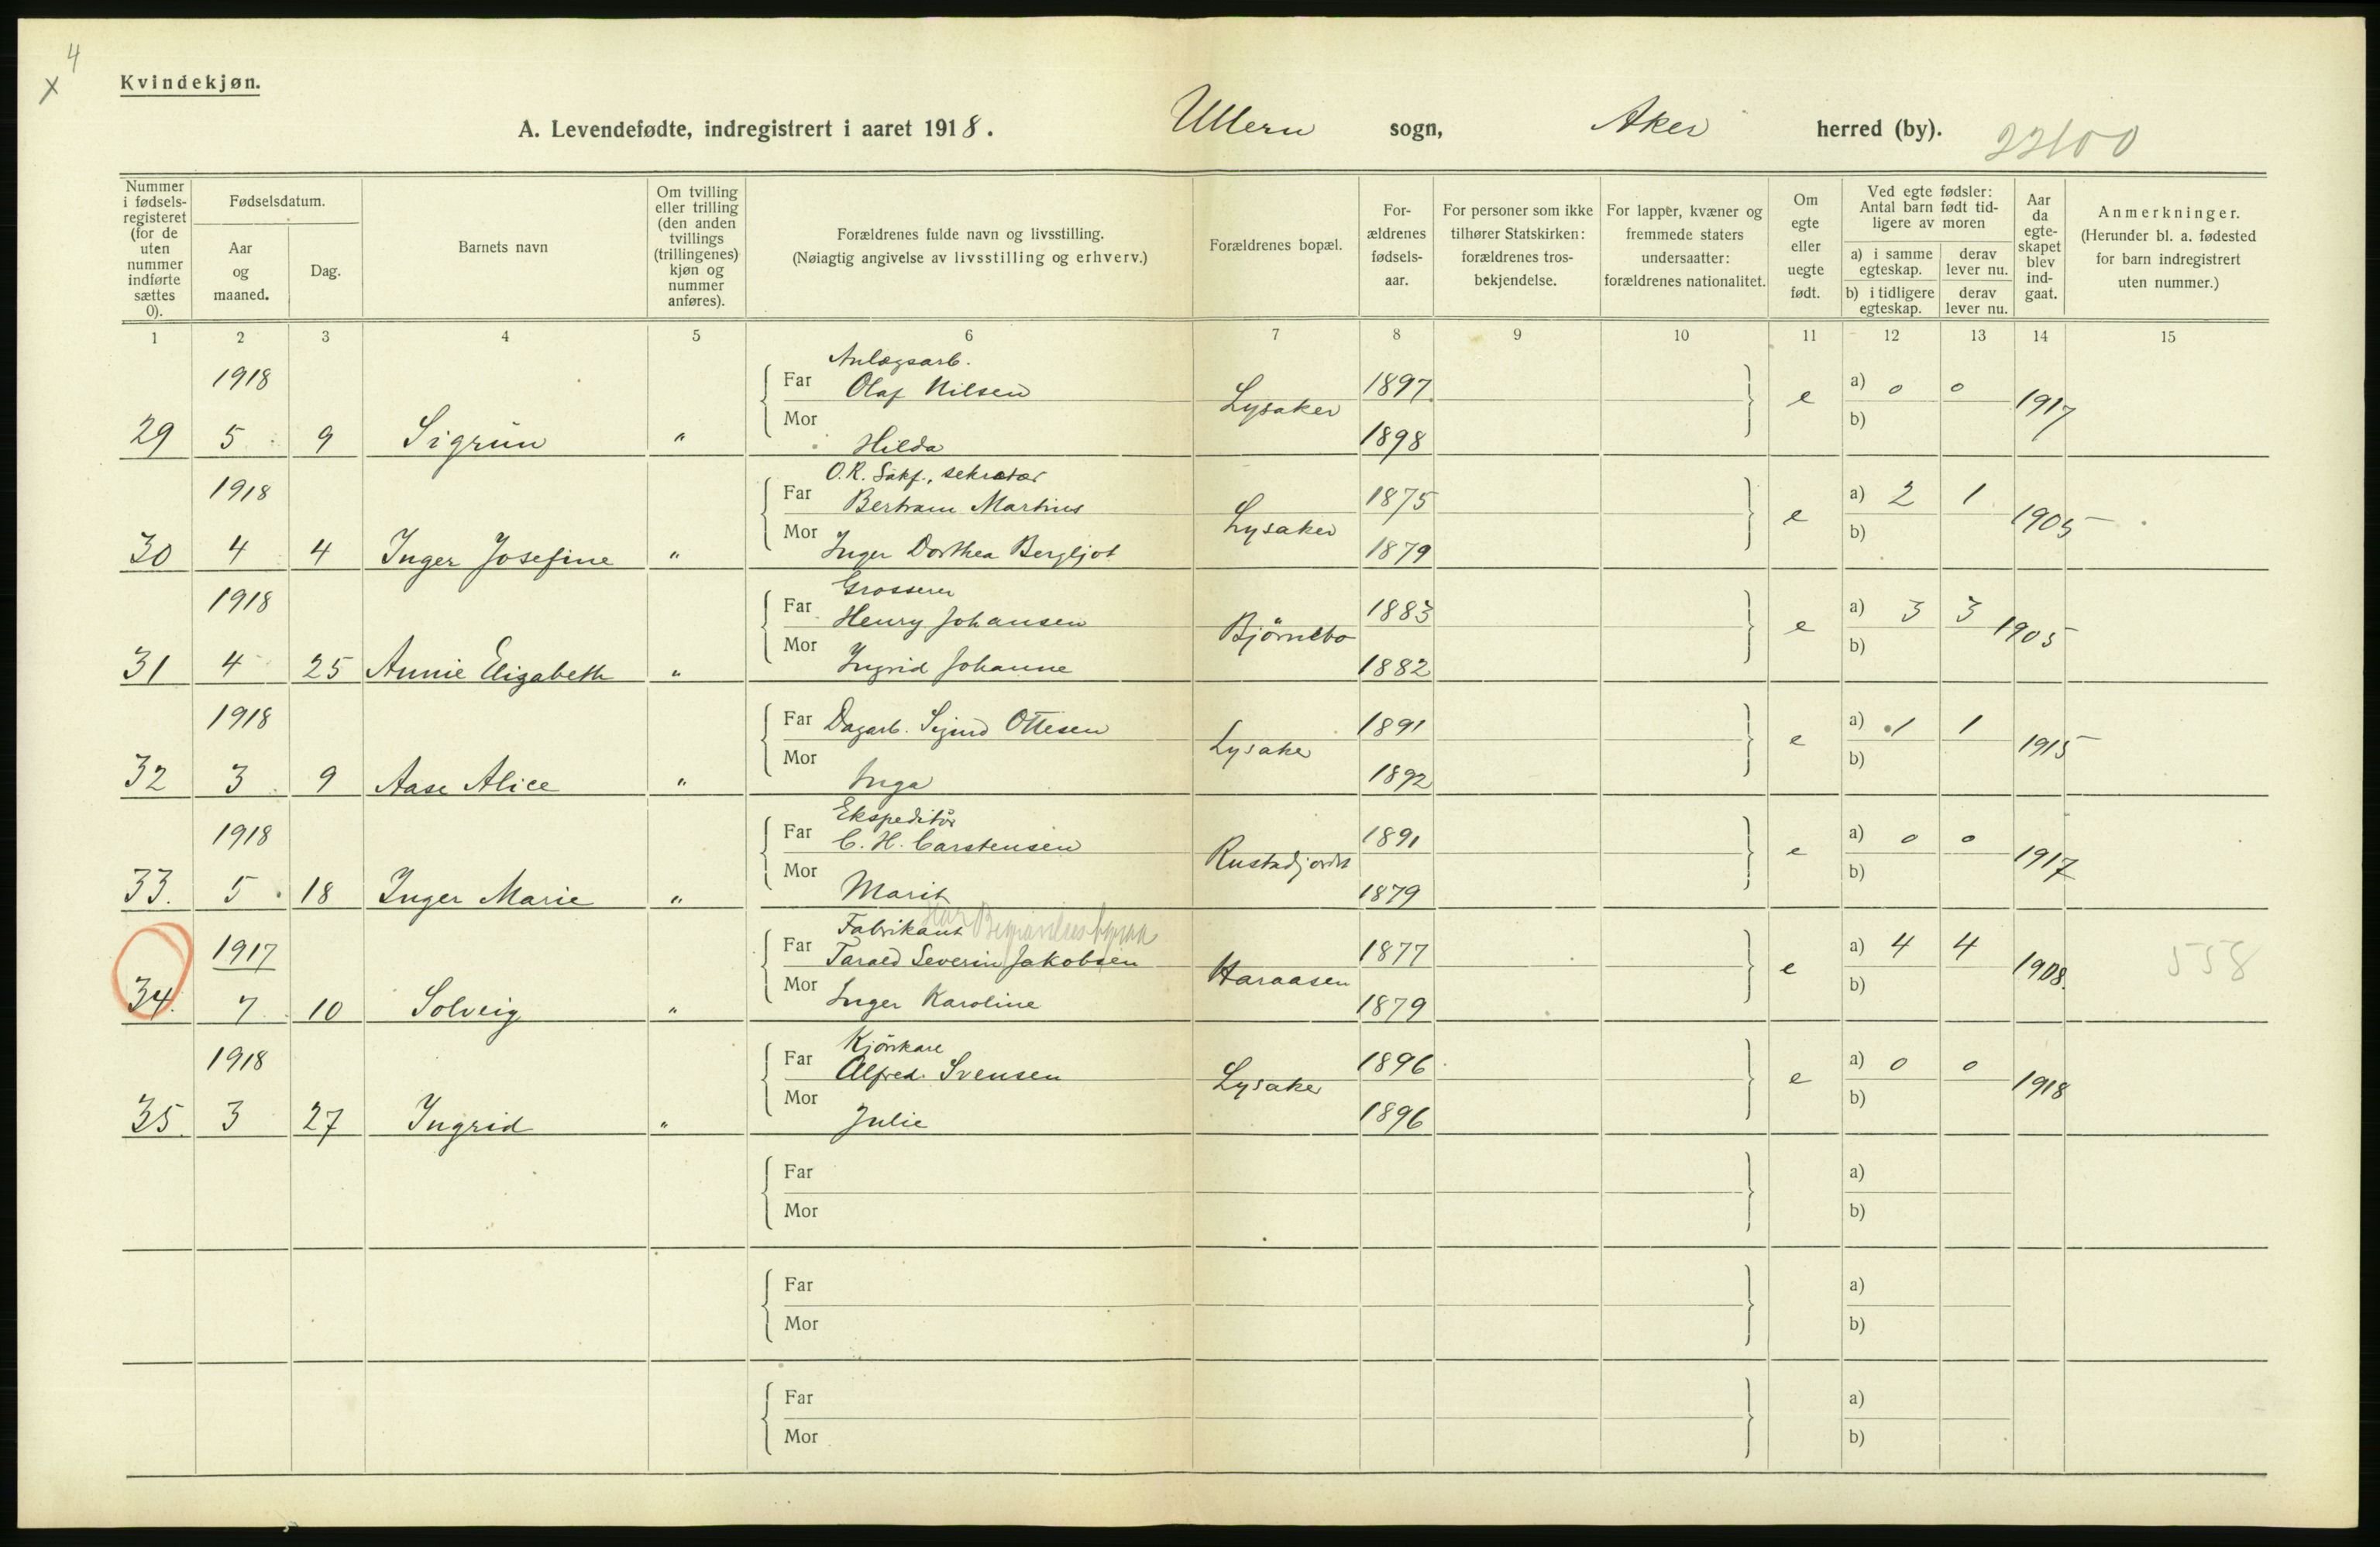 4
x
Kvindekjøn.
A. Levendefødte, indregistrert i aaret 1918. Ullern sogn, Aker herred (by). 22100
Nummer i fødsels-registeret (for de uten nummer indførte sættes 0).
Fødselsdatum.
Aar og maaned.
Dag.
Barnets navn
Om tvilling eller trilling (den anden tvillings (trillingenes) kjøn og nummer anføres).
Forældrenes fulde navn og livsstilling.
(Nøiagtig angivelse av livsstilling og erhverv.)
Forældrenes bopæl.
For-ældrenes fødsels-aar.
For personer som ikke tilhører Statskirken: forældrenes tros-bekjendelse.
For lapper, kvæner og fremmede staters undersaatter: forældrenes nationalitet.
Om egte eller uegte født.
Ved egte fødsler: Antal barn født tid-ligere av moren
a) i samme egteskap.
derav lever nu.
b) i tidligere egteskap.
derav lever nu.
Aar da egte-skapet blev ind-gaat.
Anmerkninger.
(Herunder bl. a. fødested for barn indregistrert uten nummer.)
1 2 3 4 5 6 7 8 9 10 11 12 13 14 15
Anlægsarb.
1918 Far Olaf Nilsen Lysaker 1897 e a) 0 0 1917
29 5 9 Sigrun " Mor Hilda 1898 b)
O.R. Sakf., sekretær
1918 Far Bertram Martius Lysaker 1875 e a) 2 1 1905
30 4 4 Inger Josefine " Mor Inger Dorthea Bergljot 1879 b)
Grosserer
1918 Far Henry Johansen Bjørnebo 1883 e a) 3 3 1905
31 4 25 Annie Elisabeth " Mor Ingrid Johanne 1882 b)
1918 Far Dagarb. Sigurd Ottesen Lysaker 1891 e a) 1 1 1915
32 3 9 Aase Alice " Mor Inga 1892 b)
Ekspeditør
1918 Far C. H. Carstensen Rustadjordet 1891 e a) 0 0 1917
33. 5 18 Inger Marie " Mor Marit 1879 b)
Fabrikant
1917 Far Tarald Severin Jakobsen Haraasen 1877 e a) 4 4 1908 558
34. 7 10 Solveig " Mor Inger Karoline 1879 b)
Kjørekare
1918 Far Alfred Svensen Lysaker 1896 e a) 0 0 1918
35. 3 27 Ingrid " Mor Julie 1896 b)
Far a)
Mor b)
Far a)
Mor b)
Far a)
Mor b)